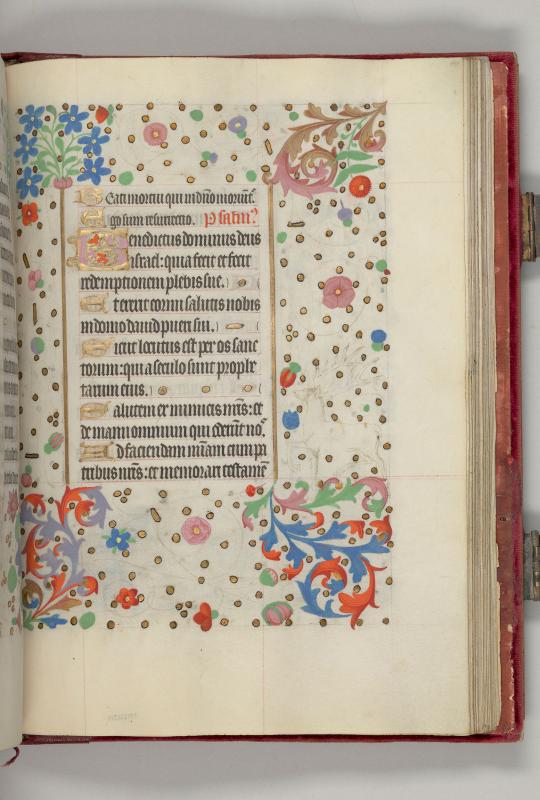 Beati mortui qui in dño moriunt᷑.
Ego sum resurrectio. Psalm?
Benedictus dominus deus
israel: quia fecit et fecit
redemptionem plebis sue.
Et erexit cornu salutis nobis
in domo dauid pueri sui.
Sicut locutus est per os sanc
torum: qui a seculo sunt prophe
tarum eius.
Salutem ex inimicis nr̃is: et
de manu omnium qui oderūt no᷒.
Ad faciendam mīam cum pa
tribus nr̃is: et memorari testamẽ